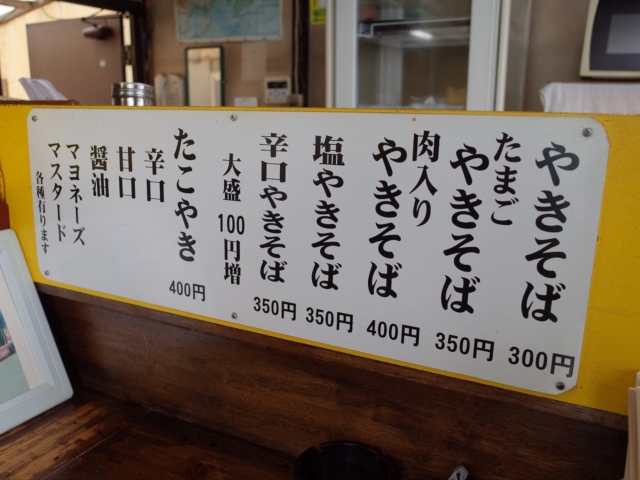 やきそば 300円
たまごやきそば 350円
肉入りやきそば 400円
塩やきそば 350円
辛口やきそば 350円
大盛 100円増
たこやき 400円
辛口
甘口
醤油
マヨネーズ
マスタード
各種有ります